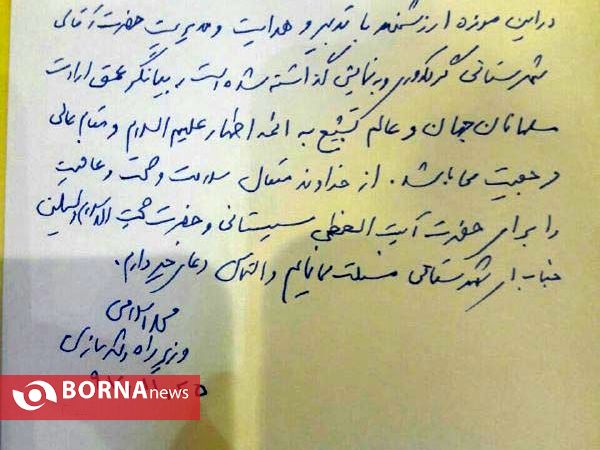 در این موزه ارزشمند با تدبیر و هدایت و مدیریت حضرت آقای
شهرستانی گردآوری و به نمایش گذاشته شده است، بیانگر عمق ارادت
مسلمانان جهان و عالم تشیع به ائمه اطهار علیهم السلام و مقام عالی
مرجعیت می باشد. از خداوند متعال سلامت و صحت و عافیت
را برای حضرت آیت الله العظمی سیستانی و حضرت حجت الاسلام والمسلمین
جناب آقای شهرستانی مسئلت می نمایم و التماس دعای خیر دارم.
محمد اسلامی
وزیر راه و شهرسازی
BORNAnews